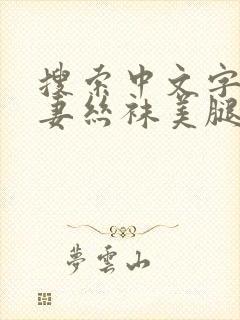 搜索中文字
妻丝袜美腿
梦云山